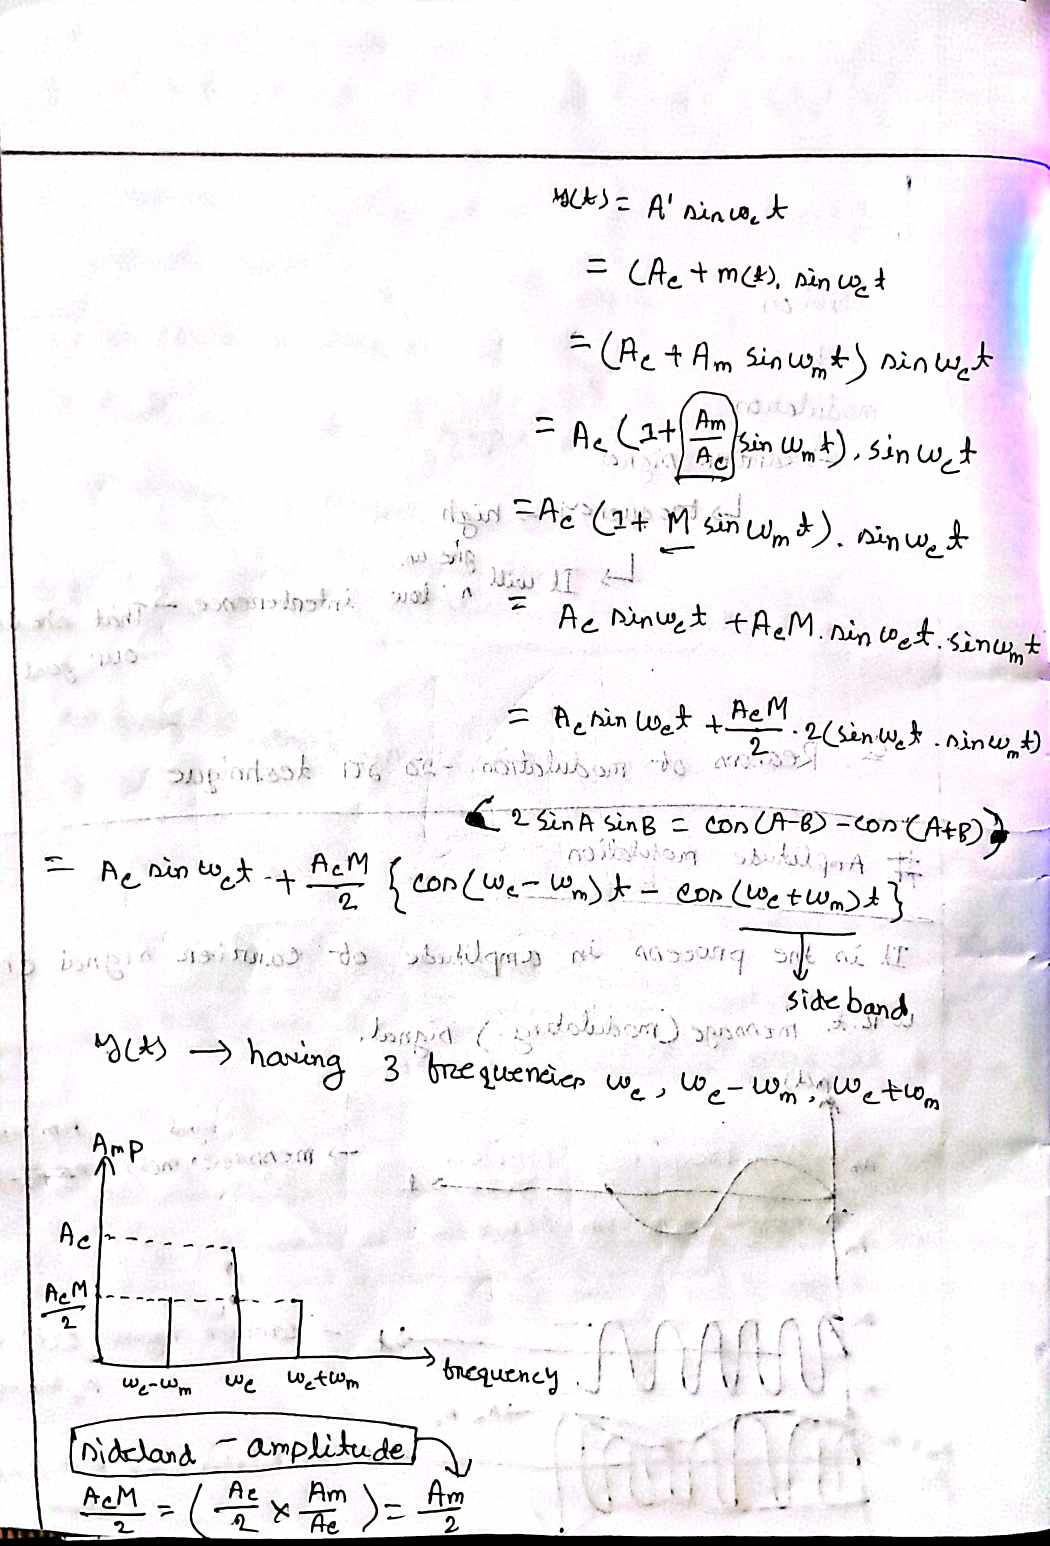 y(t) = A' sin ωc t
= (Ac + m(t). sin ωc t
= (Ac + Am sin ωm t) sin ωc t
= Ac (1 + Am/Ac sin ωm t). sin ωc t
= Ac (1 + M sin ωm t). sin ωc t
= Ac sin ωc t + AcM. sin ωc t. sin ωm t
= Ac sin ωc t + AcM/2 . 2(sin ωc t . sin ωm t)
( 2 sin A sin B = cos (A-B) - cos (A+B) )
= Ac sin ωc t + AcM/2 { cos (ωc - ωm) t - cos (ωc + ωm) t }
side band
y(t) → having 3 frequencies ωc, ωc - ωm, ωc + ωm
Amp
Ac
AcM/2
ωc-ωm ωc ωc+ωm frequency.
sideband - amplitude
AcM/2 = ( Ac/2 × Am/Ac ) = Am/2